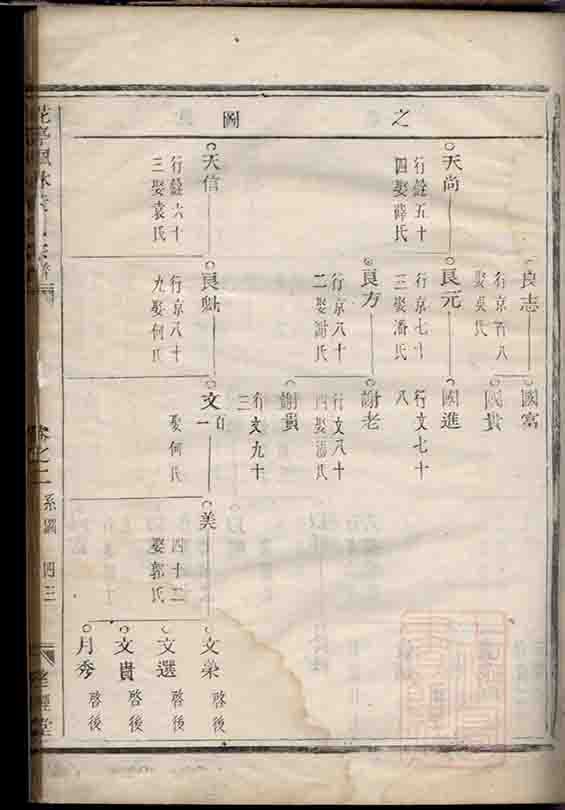 之圖
良志
行京百八
娶吳氏
國富
國貴
天尚
行銓五十
四娶薛氏
良元
行京七十
三娶潘氏
國進
行文七十
八
良方
行京八十
二娶謝氏
謝老
行文八十
四娶潘氏
謝貴
行文九十
三
天信
行銓六十
三娶袁氏
良
行京八十
九娶何氏
文
百一
娶何氏
美
四十二
娶郭氏
文榮 啓後
文選 啓後
文貴 啓後
月秀 啓後
卷之二 系圖 四三